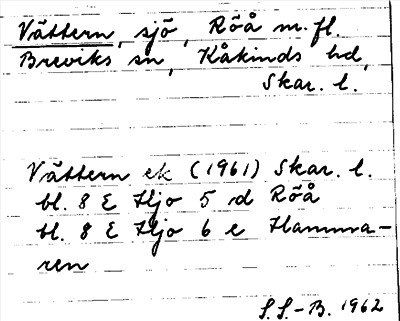 Vättern, sjö, Röå m. fl.
Breviks sn, Kåkinds hd,
Skar. l.
Vättern ek (1961) Skar. l.
bl. 8 E Hjo 5 d Röå
bl. 8 E Hjo 6 e Hamma-
ren
S.S.-B. 1962